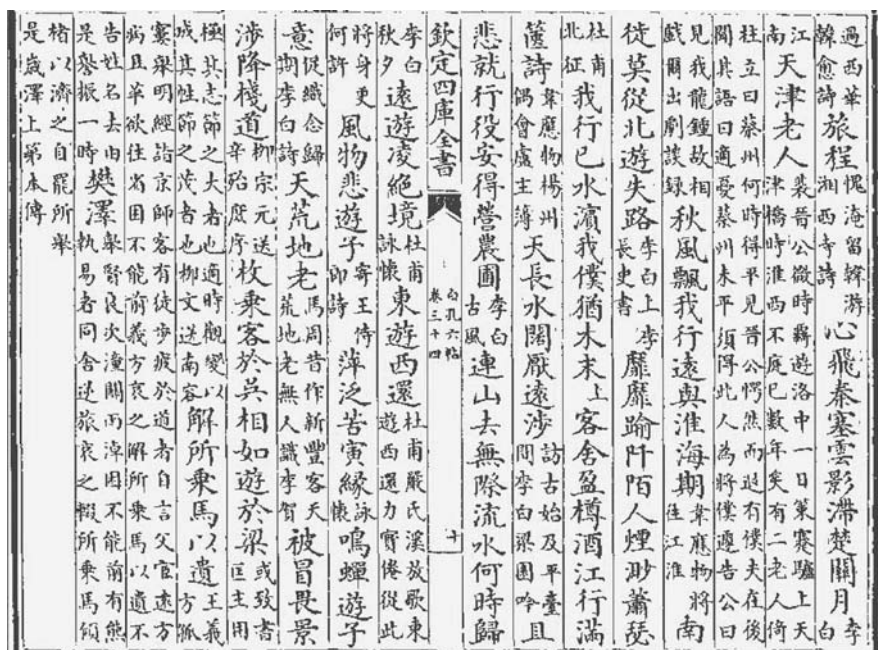 過西華韓愈詩旅程愧淹留韓游湘西寺詩心飛秦塞雲影滯楚關月李白
江南天津老人裴晉公微時羈遊洛中一日策蹇驢上天津橋時淮西不庭已數年矣有二老人倚
柱立曰蔡州何時得平見晉公愕然而退有僕夫在後聞其語曰適憂蔡州未平須得此人為將僕遽告公曰
見我龍鍾故相戲爾出劇談録秋風飄我行遠與淮海期韋應物將往江淮南
徒莫從北遊失路李白上李長史書靡靡踰阡陌人煙眇蕭瑟
杜甫北征我行已水濱我僕猶木末上客舍盈樽酒江行滿
篋詩韋應物楊州偶會盧主簿天長水闊厭遠涉訪古始及平臺間李白梁園吟且
悲就行役安得營農圃李白古風連山去無際流水何時歸
欽定四庫全書
白孔六帖
卷三十四
十
李白秋夕遠遊凌絶境杜甫詠懷東遊西還杜甫嚴氏溪放歌東遊西還力實倦從此
將身更何許風物悲遊子寄王侍御詩萍泛苦寅緣詠懷鳴蟬遊子
意促織念歸期李白詩天荒地老馬周昔作新豐客天荒地老無人識李賀被冒畏景
涉降棧道柳宗元送辛殆庶序枚乘客於吳相如遊於梁或致書匡主用
極其志節之大者也適時觀變以成其性節之茂者也柳文送南容解所乘馬以遺王義方孤
窶舉明經詣京師客有徒步疲於道者自言父宦遠方病且革欲往省困不能前義方哀之解所乘馬以遺不
告姓名去由是譽振一時樊澤舉賢良次潼關雨淖困不能前有熊執易者同舍逆旅哀之輟所乘馬傾
褚以濟之自罷所舉是歲澤上第本傳